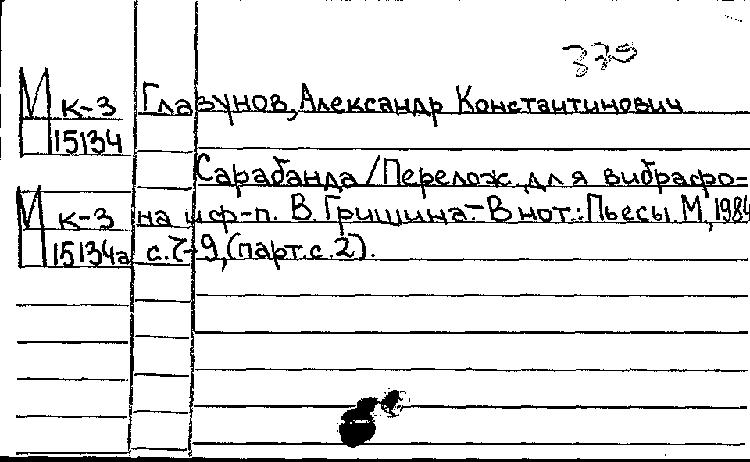 339
М к-3 Глазунов, Александр Константинович
П 15134
Сарабанда/Перелож. для вибрафо-
М к-3 на и ф-п. В. Гришина.-В нот.: Пьесы. М., 1984
П 15134а с.7-9, (парт.с.2).